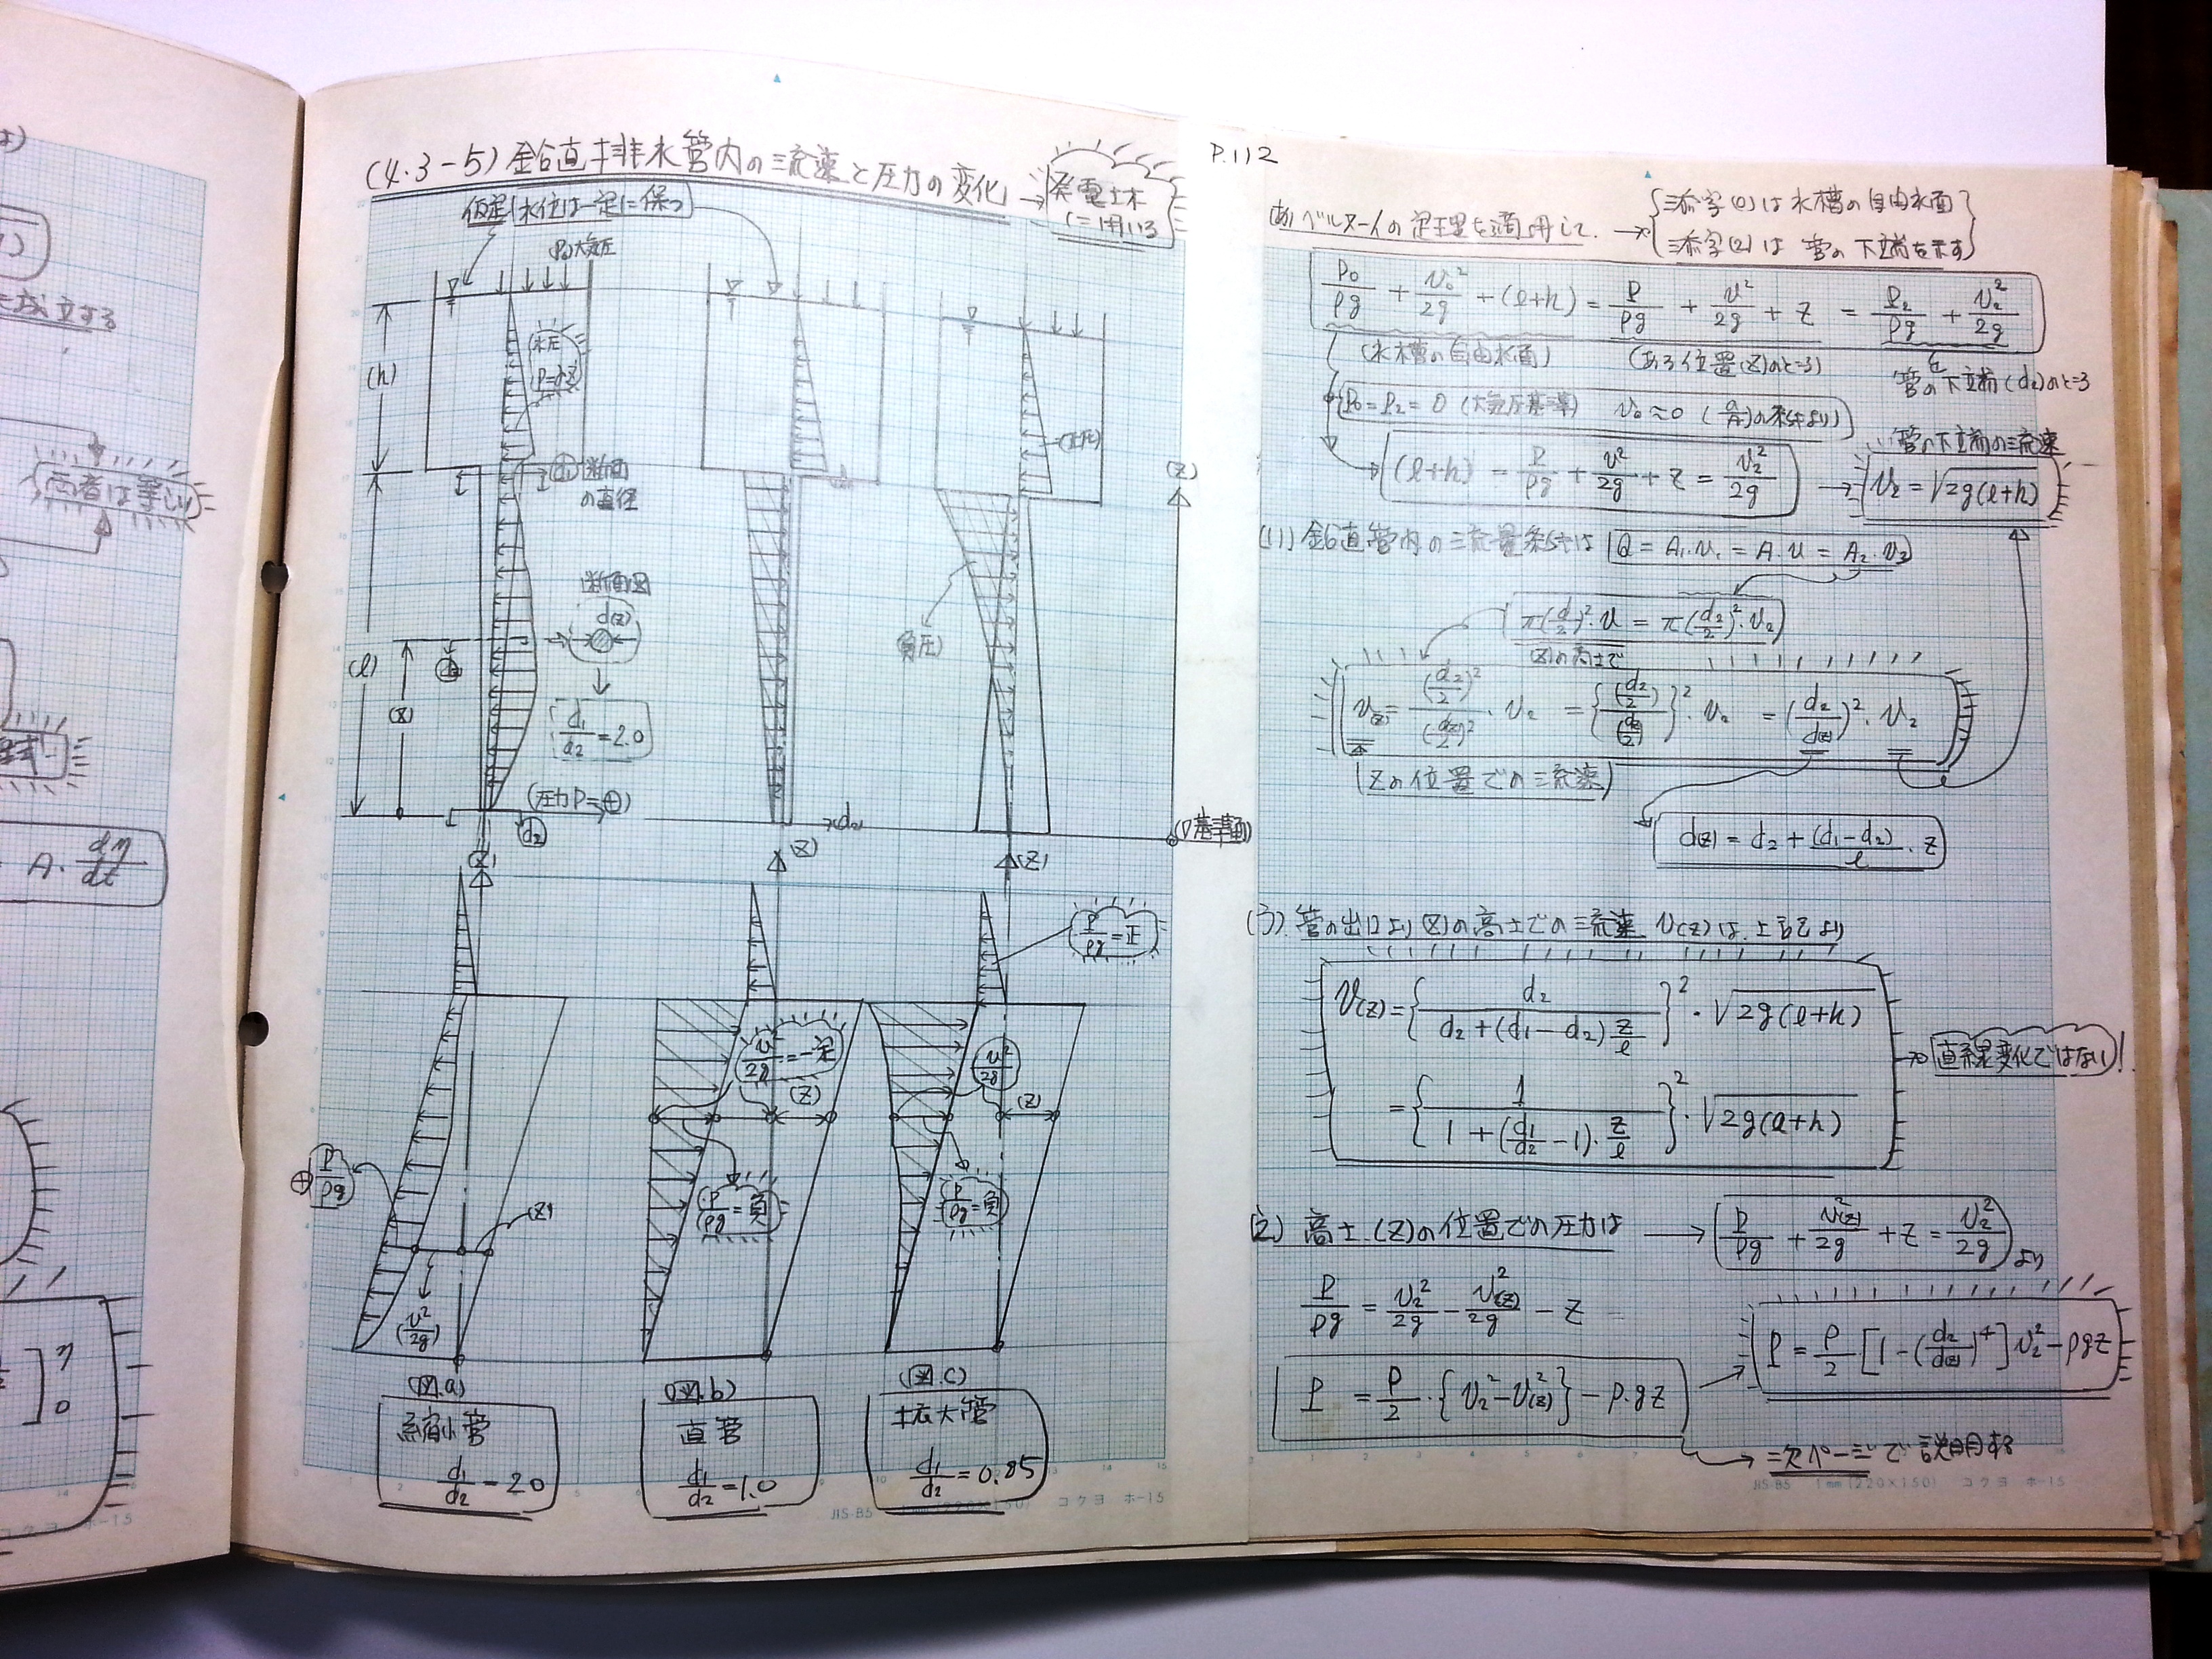 (4.3-5) 鉛直排水管内の流速と圧力の変化 → 発電土木に用いる
仮定 水位は一定に保つ
(P₀)大気圧
(h)
水圧
(正圧)
(d₁) 断面の直径
(z)
断面図
d(z)
d₁/d₂ = 2.0
(負圧)
(l)
(z)
(圧力P=⊕)
d₂
d₂
(▽基準面)
(z)
(z)
(z)
P/ρg = 正
v²/2g = 一定
(z)
v²/2g
(z)
⊕ P/ρg
(z)
(v²/2g)
P/ρg = 負
P/ρg = 負
(図.a)
縮小管
d₁/d₂ = 2.0
(図.b)
直管
d₁/d₂ = 1.0
(図.c)
拡大管
d₁/d₂ = 0.85
JIS-B5 1mm(220×150) コクヨ ホ-15
P.112
ベルヌーイの定理を適用して. → {添字(0)は水槽の自由水面
添字(2)は管の下端を示す}
P₀/ρg + v₀²/2g + (l+h) = P/ρg + v²/2g + z = P₂/ρg + v₂²/2g
(水槽の自由水面) (ある位置(z)のとき) 管の下端(d₂)のとき
P₀=P₂=0 (大気圧基準) v₀≈0 (a/A)の条件より)
(l+h) = P/ρg + v²/2g + z = v₂²/2g →
管の下端の流速
v₂ = √2g(l+h)
(1) 鉛直管内の流量条件は Q = A₁·v₁ = A·v = A₂·v₂
π(d/2)²·v = π(d₂/2)²·v₂
(z)の高さで
v(z) = (d₂/2)²/(d(z)/2)² · v₂ = {(d₂/2)/(d(z)/2)}²·v₂ = (d₂/d(z))²·v₂
(zの位置での流速)
d(z) = d₂ + (d₁-d₂)/l · z
(う) 管の出口より(z)の高さでの流速 v(z)は上記より
v(z) = {d₂/(d₂+(d₁-d₂)z/l)}²·√2g(l+h)
= {1/(1+(d₁/d₂-1)·z/l)}²·√2g(l+h)
→ 直線変化ではない!
(え) 高さ(z)の位置での圧力は → (P/ρg + v(z)²/2g + z = v₂²/2g) より
P/ρg = v₂²/2g - v(z)²/2g - z
P = ρ/2·{v₂²-v(z)²} - ρ·gz
P = ρ/2·[1-(d₂/d(z))⁴]v₂² - ρgz
→ 次ページで説明する
JIS-B5 1mm(220×150) コクヨ ホ-15
成立する
両者は等しい
A·dη/dt
]η₀
コクヨ ホ-15